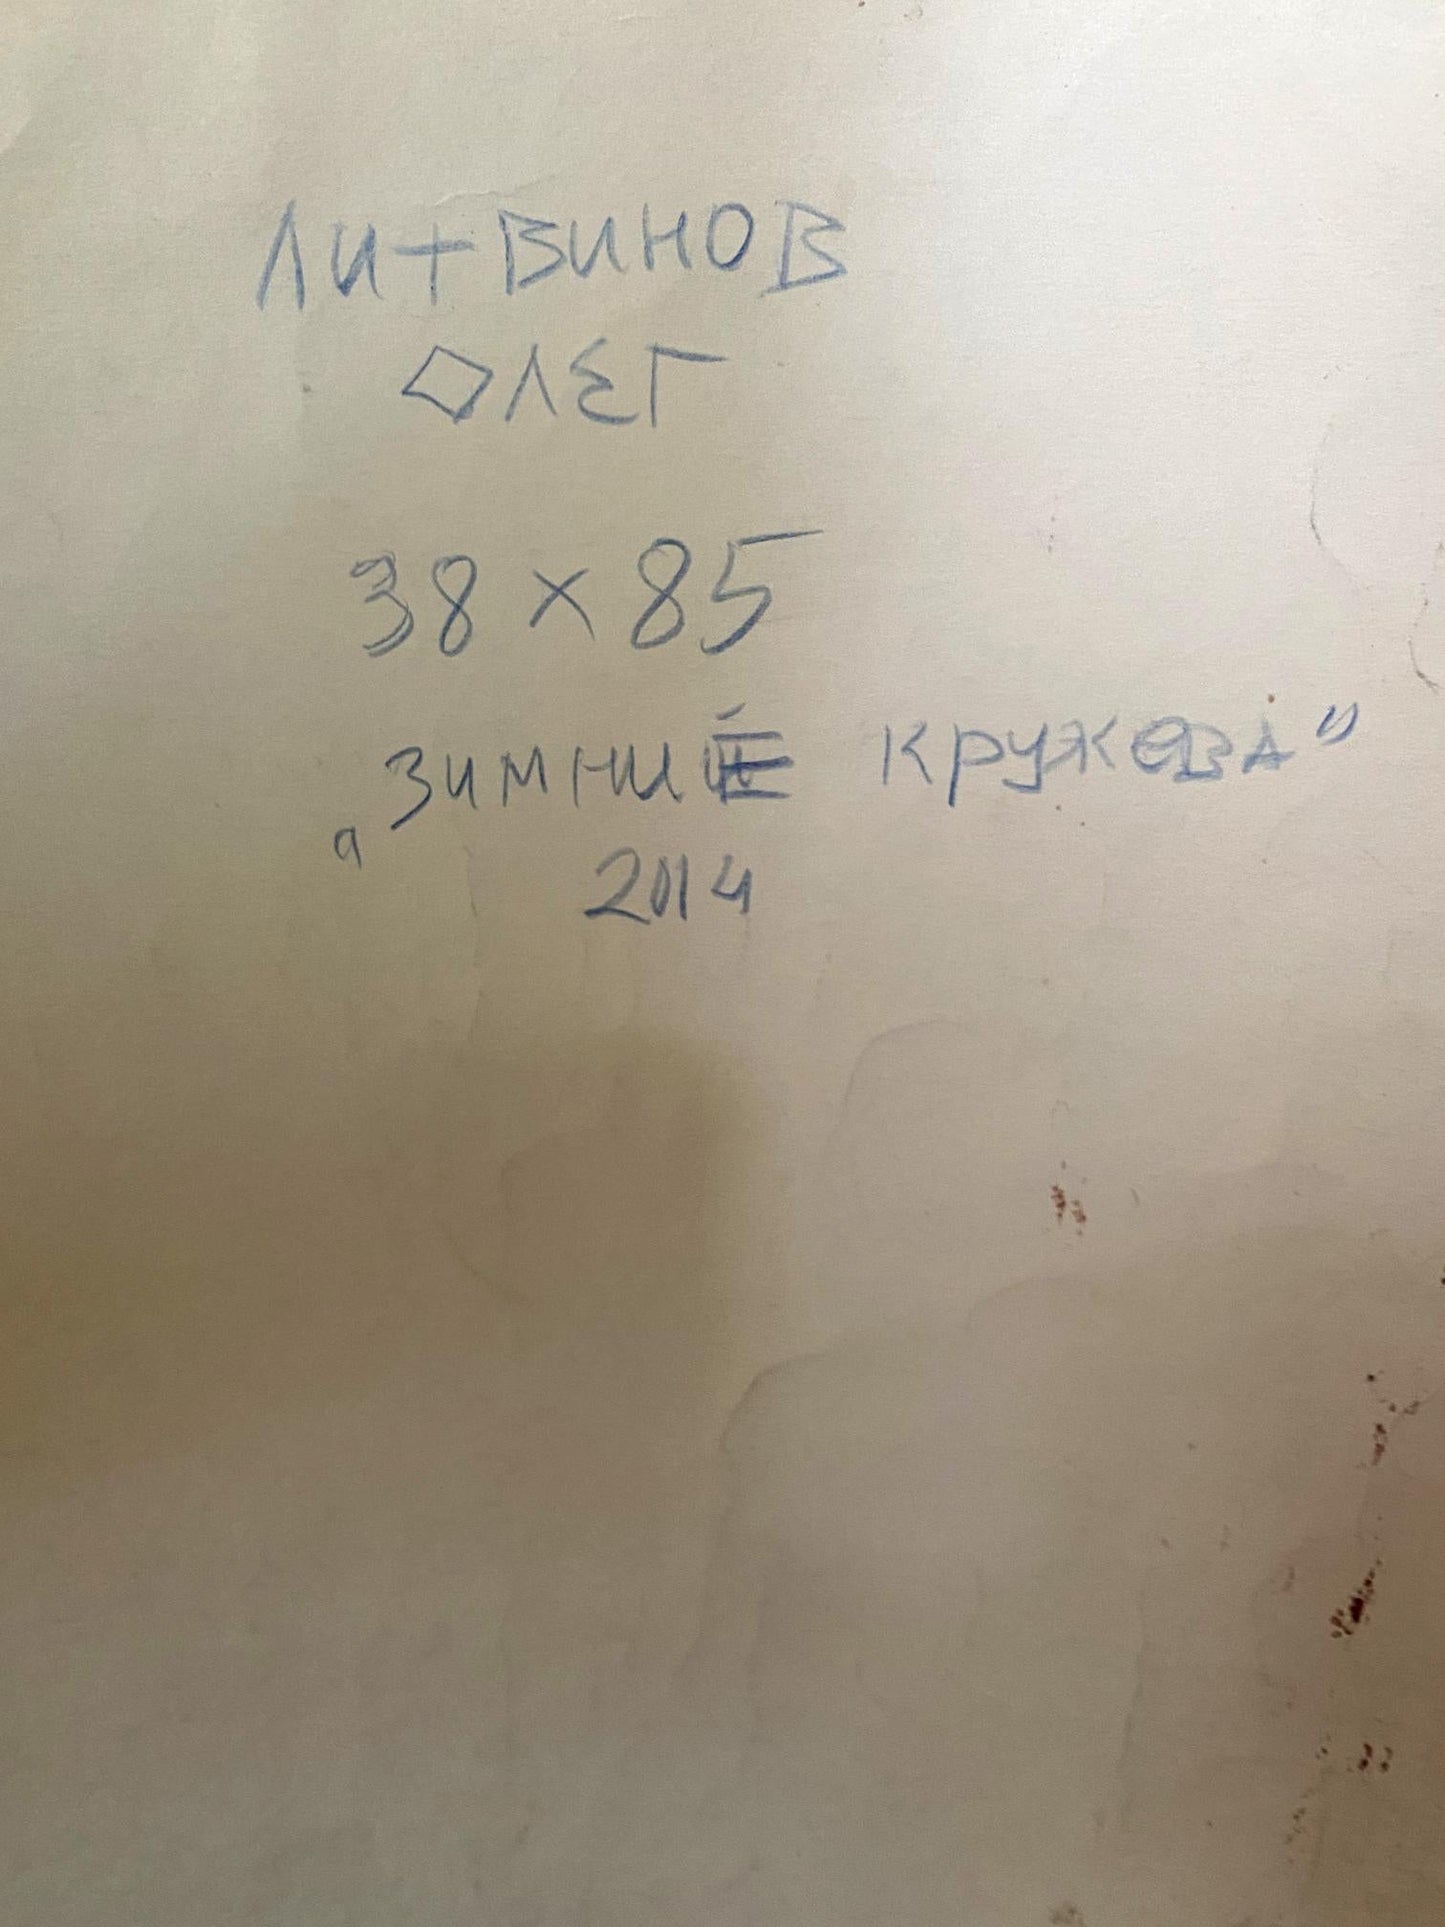 ЛИТВИНОВ
ОЛЕГ
38 × 85
„ЗИМНИЕ КРУЖЕВА"
2014